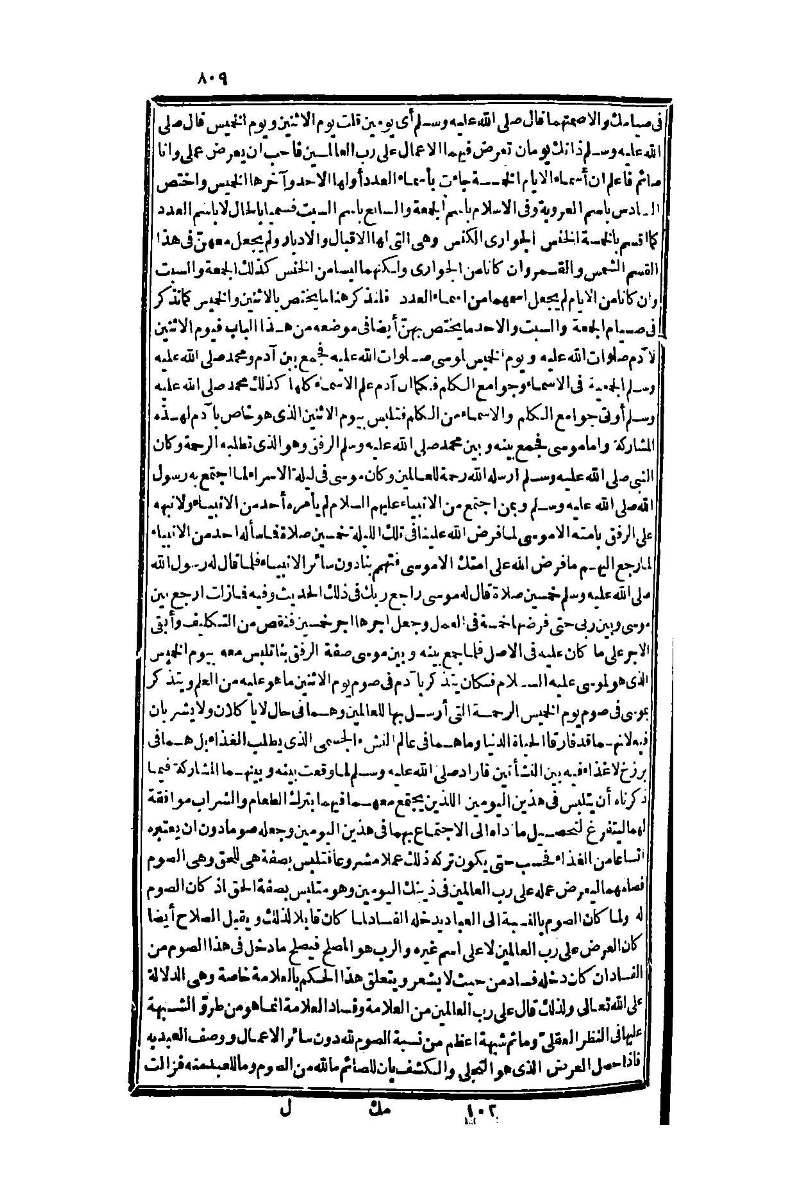 ٨٠٩
فى صيامك والا صمتهما قال صلى الله عليه وسلم أى يومين قلت يوم الاثنين ويوم الخميس قال صلى
الله عليه وسلم ذانك يومان تعرض فيهما الاعمال على رب العالمين فاحب ان يعرض عملى وانا
صائم فاعلم ان أسماء الايام الخمسة جاءت بأسماء العدد أولها الاحد وآخرها الخميس واختص
السادس باسم العروبة وفى الاسلام باسم الجمعة والسابع باسم السبت فسميا بالحال لا باسم العدد
كما قسم بالخمسة الخنس الجوارى الكنس وهى التى لها الاقبال والادبار ولم يجعل معهن فى هذا
القسم الشمس والقمر وان كانا من الجوارى ولكنهما ليسا من الخنس كذلك الجمعة والسبت
وان كانا من الايام لم يجعل اسمهما من اسماء العدد فلنذكر هنا ما يختص بالاثنين والخميس كما نذكر
فى صيام الجمعة والسبت والاحد ما يختص بهن أيضا فى موضعه من هذا الباب فيوم الاثنين
لآدم صلوات الله عليه ويوم الخميس لموسى صلوات الله عليه فجمع بين آدم ومحمد صلى الله عليه
وسلم الجمعية فى الاسماء وجوامع الكلم فكما ان آدم علم الاسماء كلها كذلك محمد صلى الله عليه
وسلم أوتى جوامع الكلم والاسماء من الكلم فتلبس بيوم الاثنين الذى هو خاص بآدم لهذه
المشاركة واما موسى فجمع بينه وبين محمد صلى الله عليه وسلم الرفق وهو الذى تطلبه الرحمة وكان
النبى صلى الله عليه وسلم ارسله الله رحمة للعالمين وكان موسى فى ليلة الاسراء لما اجتمع به رسول
الله صلى الله عليه وسلم وبمن اجتمع من الانبياء عليهم السلام لم يأمره أحد من الانبياء ولا نبهه
على الرفق بامته الا موسى لما فرض الله علينا فى تلك الليلة خمسين صلاة فما سأله احد من الانبياء
لما رجع اليهم ما فرض الله على امتك الا موسى فتهمم بنا دون سائر الانبياء فلما قال له رسول الله
صلى الله عليه وسلم خمسين صلاة قال له موسى راجع ربك فى ذلك الحديث وفيه فما زلت ارجع بين
موسى وبين ربى حتى فرضها خمسة فى العمل وجعل اجرها اجر خمسين فنقص من التكليف وأبقى
الاجر على ما كان عليه فى الاصل فلما جمع بينه وبين موسى صفة الرفق بنا تلبس معه بيوم الخميس
الذى هو لموسى عليه السلام فكان يتذكر بآدم فى صوم يوم الاثنين ما هو عليه من العلم ويتذكر
بموسى فى صوم يوم الخميس الرحمة التى أرسل بها للعالمين وهما فى حال لا يأكلان ولا يشربان
فيه لانهما قد فارقا الحياة الدنيا وما هما فى عالم النشء الجسمى الذى يطلب الغذاء بل هما فى
برزخ لا غذاء فيه بين النشأتين فاراد صلى الله عليه وسلم لما وقعت بينه وبينهما المشاركة فيما
ذكرناه أن يتلبس فى هذين اليومين اللذين يجتمع معهما فيهما بترك الطعام والشراب موافقة
لهما ليتفرغ لتحصيل ما داه الى الاجتماع بهما فى هذين اليومين وجعله صوما دون ان يعتبره
اتساعا من الغذاء فحسب حتى يكون تركه ذلك عملا مشروعا فتلبس بصفة هى للحق وهى الصوم
فصامهما ليعرض عمله على رب العالمين فى ذينك اليومين وهو متلبس بصفة الحق اذ كان الصوم
له ولما كان الصوم بالنسبة الى العباد يدخله الفساد لما كان قابلا لذلك ويقبل الصلاح أيضا
كان العرض على رب العالمين لا على اسم غيره والرب هو المصلح فيصلح ما دخل فى هذا الصوم من
الفساد ان كان دخله فساد من حيث لا يشعر ويتعلق هذا الحكم بالعلامة خاصة وهى الدلالة
على الله تعالى ولذلك قال على رب العالمين من العلامة وفساد العلامة انما هو من طروّ الشبهة
عليها فى النظر العقلى وما ثم شبهة اعظم من نسبة الصوم لله دون سائر الاعمال ووصف العبد به
فاذا حصل العرض الذى هو التجلى والكشف بان للصائم ما لله من الصوم وما للعبد منه فزالت
١٠٢ مك ل